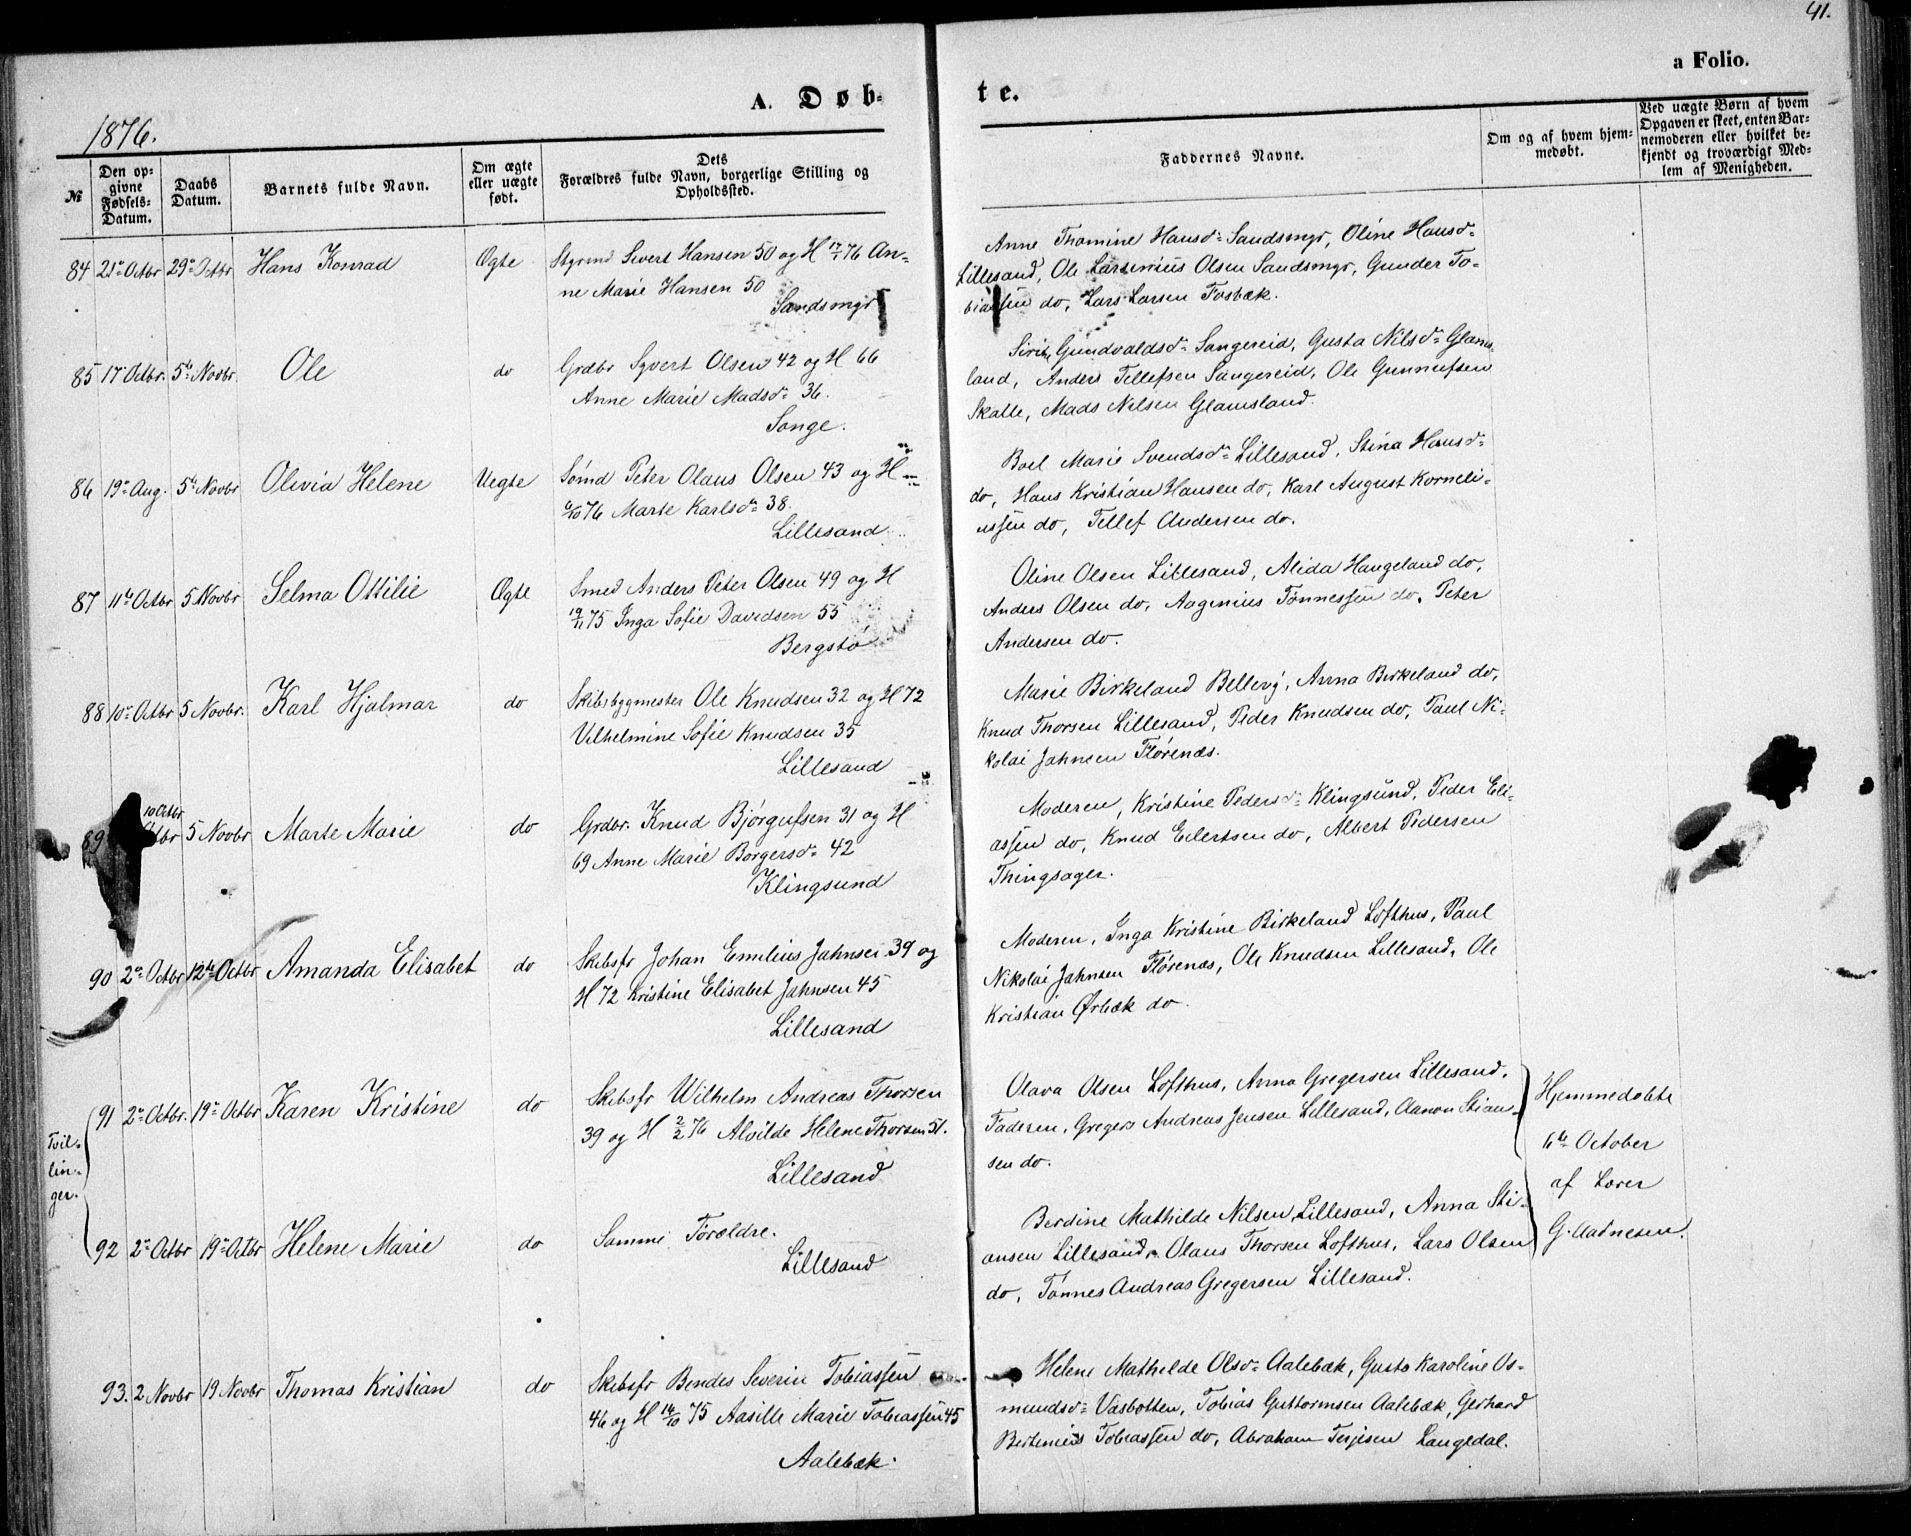 41.
a Folio.
A. Døb-
te.
1876.
№
Den op-
givne
Fødsels-
Datum.
Daabs
Datum.
Barnets fulde Navn.
Om ægte
eller uægte
født.
Dets
Forældres fulde Navn, borgerlige Stilling og
Opholdssted.
Faddernes Navne.
Om og af hvem hjem-
medøbt.
Ved uægte Børn af hvem
Opgaven er skeet, enten Bar-
nemoderen eller hvilket be-
kjendt og troværdigt Med-
lem af Menigheden.
84 21de Octbr 29de Octbr Hans Konrad Ægte Styrmd Sivert Hansen 50 og H 17/7 76 An-
ne Marie Hansen 50
Sandsmyr
Anne Thomine Hansd= Sandsmyr, Oline Hansd=
Lillesand, Ole Larsenius Olsen Sandsmyr, Gunder To-
biassen do, Lars Larsen Fosbæk.
85 17de Octbr. 5te Novbr. Ole do Grdbr Syvert Olsen 42 og H 66
Anne Marie Madsd= 36.
Songe.
Siri Gundvaldsd= Sangereid, Gusta Nilsd= Glams-
land, Anders Tellefsen Sangereid, Ole Gunnufsen
Skalle, Mads Nilsen Glamsland.
86 19de Aug. 5te Novbr Olivia Helene Uegte Sømd Peter Olaus Olsen 43 og H
6/10 76 Marte Karlsd= 38.
Lillesand
Boel Marie Svendsd= Lillesand, Stina Hansd=
do, Hans Kristian Hansen do, Karl August Korneli-
ussen do, Tellef Andersen do.
87 11te Octbr 5 Novbr Selma Ottilie Ægte Smed Anders Peter Olsen 49 og H
19/11 75 Inga Sofie Davidsen 55
Bergstø
Oline Olsen Lillesand, Alida Haugeland do,
Anders Olsen do, Aagenius Tønnessen do, Peter
Andersen do.
88 10de Octbr 5 Novbr. Karl Hjalmar do Skibsbygmester Ole Knudsen 32 og H 72
Vilhelmine Sofie Knudsen 35
Lillesand
Marie Birkeland Bellevy, Anna Birkeland do,
Knud Thorsen Lillesand, Peder Knudsen do, Paul Ni-
kolai Jahnsen Flørenæs.
89 10 Octbr 5 Novbr Marte Marie do Grdbr. Knud Bjørgufsen 31 og H
69 Anne Marie Børgersd= 42
Klingsund
Moderen, Kristine Pedersd= Klingsund, Peder Eli-
assen do, Knud Eilertsen do, Albert Pedersen
Thingsager.
90 2de Octbr 12te Octbr Amanda Elisabet do Skibsfr Johan Emilius Jahnsen 39 og
H 72 Kristine Elisabet Jahnsen 45
Lillesand
Moderen, Inga Kristine Birkeland Lofthus, Paul
Nikolai Jahnsen Flørenæs, Ole Knudsen Lillesand, Ole
Kristian Ørbæk do.
Tvil-
lin-
ger.
91 2de Octbr. 19de Octbr Karen Kristine do Skibsfr Wilhelm Andreas Thorsen
39 og H 2/2 76 Alvilde Helene Thorsen 51.
Lillesand
Olava Olsen Lofthus, Anna Gregersen Lillesand,
Faderen, Gregers Andreas Jensen Lillesand, Aanon Stian-
sen do.
Hjemmedøbte
6te October
af Lærer
G. Aadnesen.
92 2de Octbr 19de Octbr Helene Marie do Samme Forældre.
Lillesand
Berdine Mathilde Nilsen, Lillesand, Anna Sti-
ansen Lillesand, Olaus Thorsen Lofthus, Lars Olsen
do, Tønnes Andreas Gregersen Lillesand.
93. 2 Novbr 19 Novbr Thomas Kristian do Skibsfr Bendes Severin Tobiassen
46 og H 14/10 75 Aasille Marie Tobiassen 45
Aalebæk.
Helene Mathilde Olsd= Aalebæk, Gusta Karoline Os-
mundsd= Vasbotten, Tobias Guttormsen Aalebæk, Gerhard
Bertinius Tobiassen do, Abraham Terjesen Langedal.